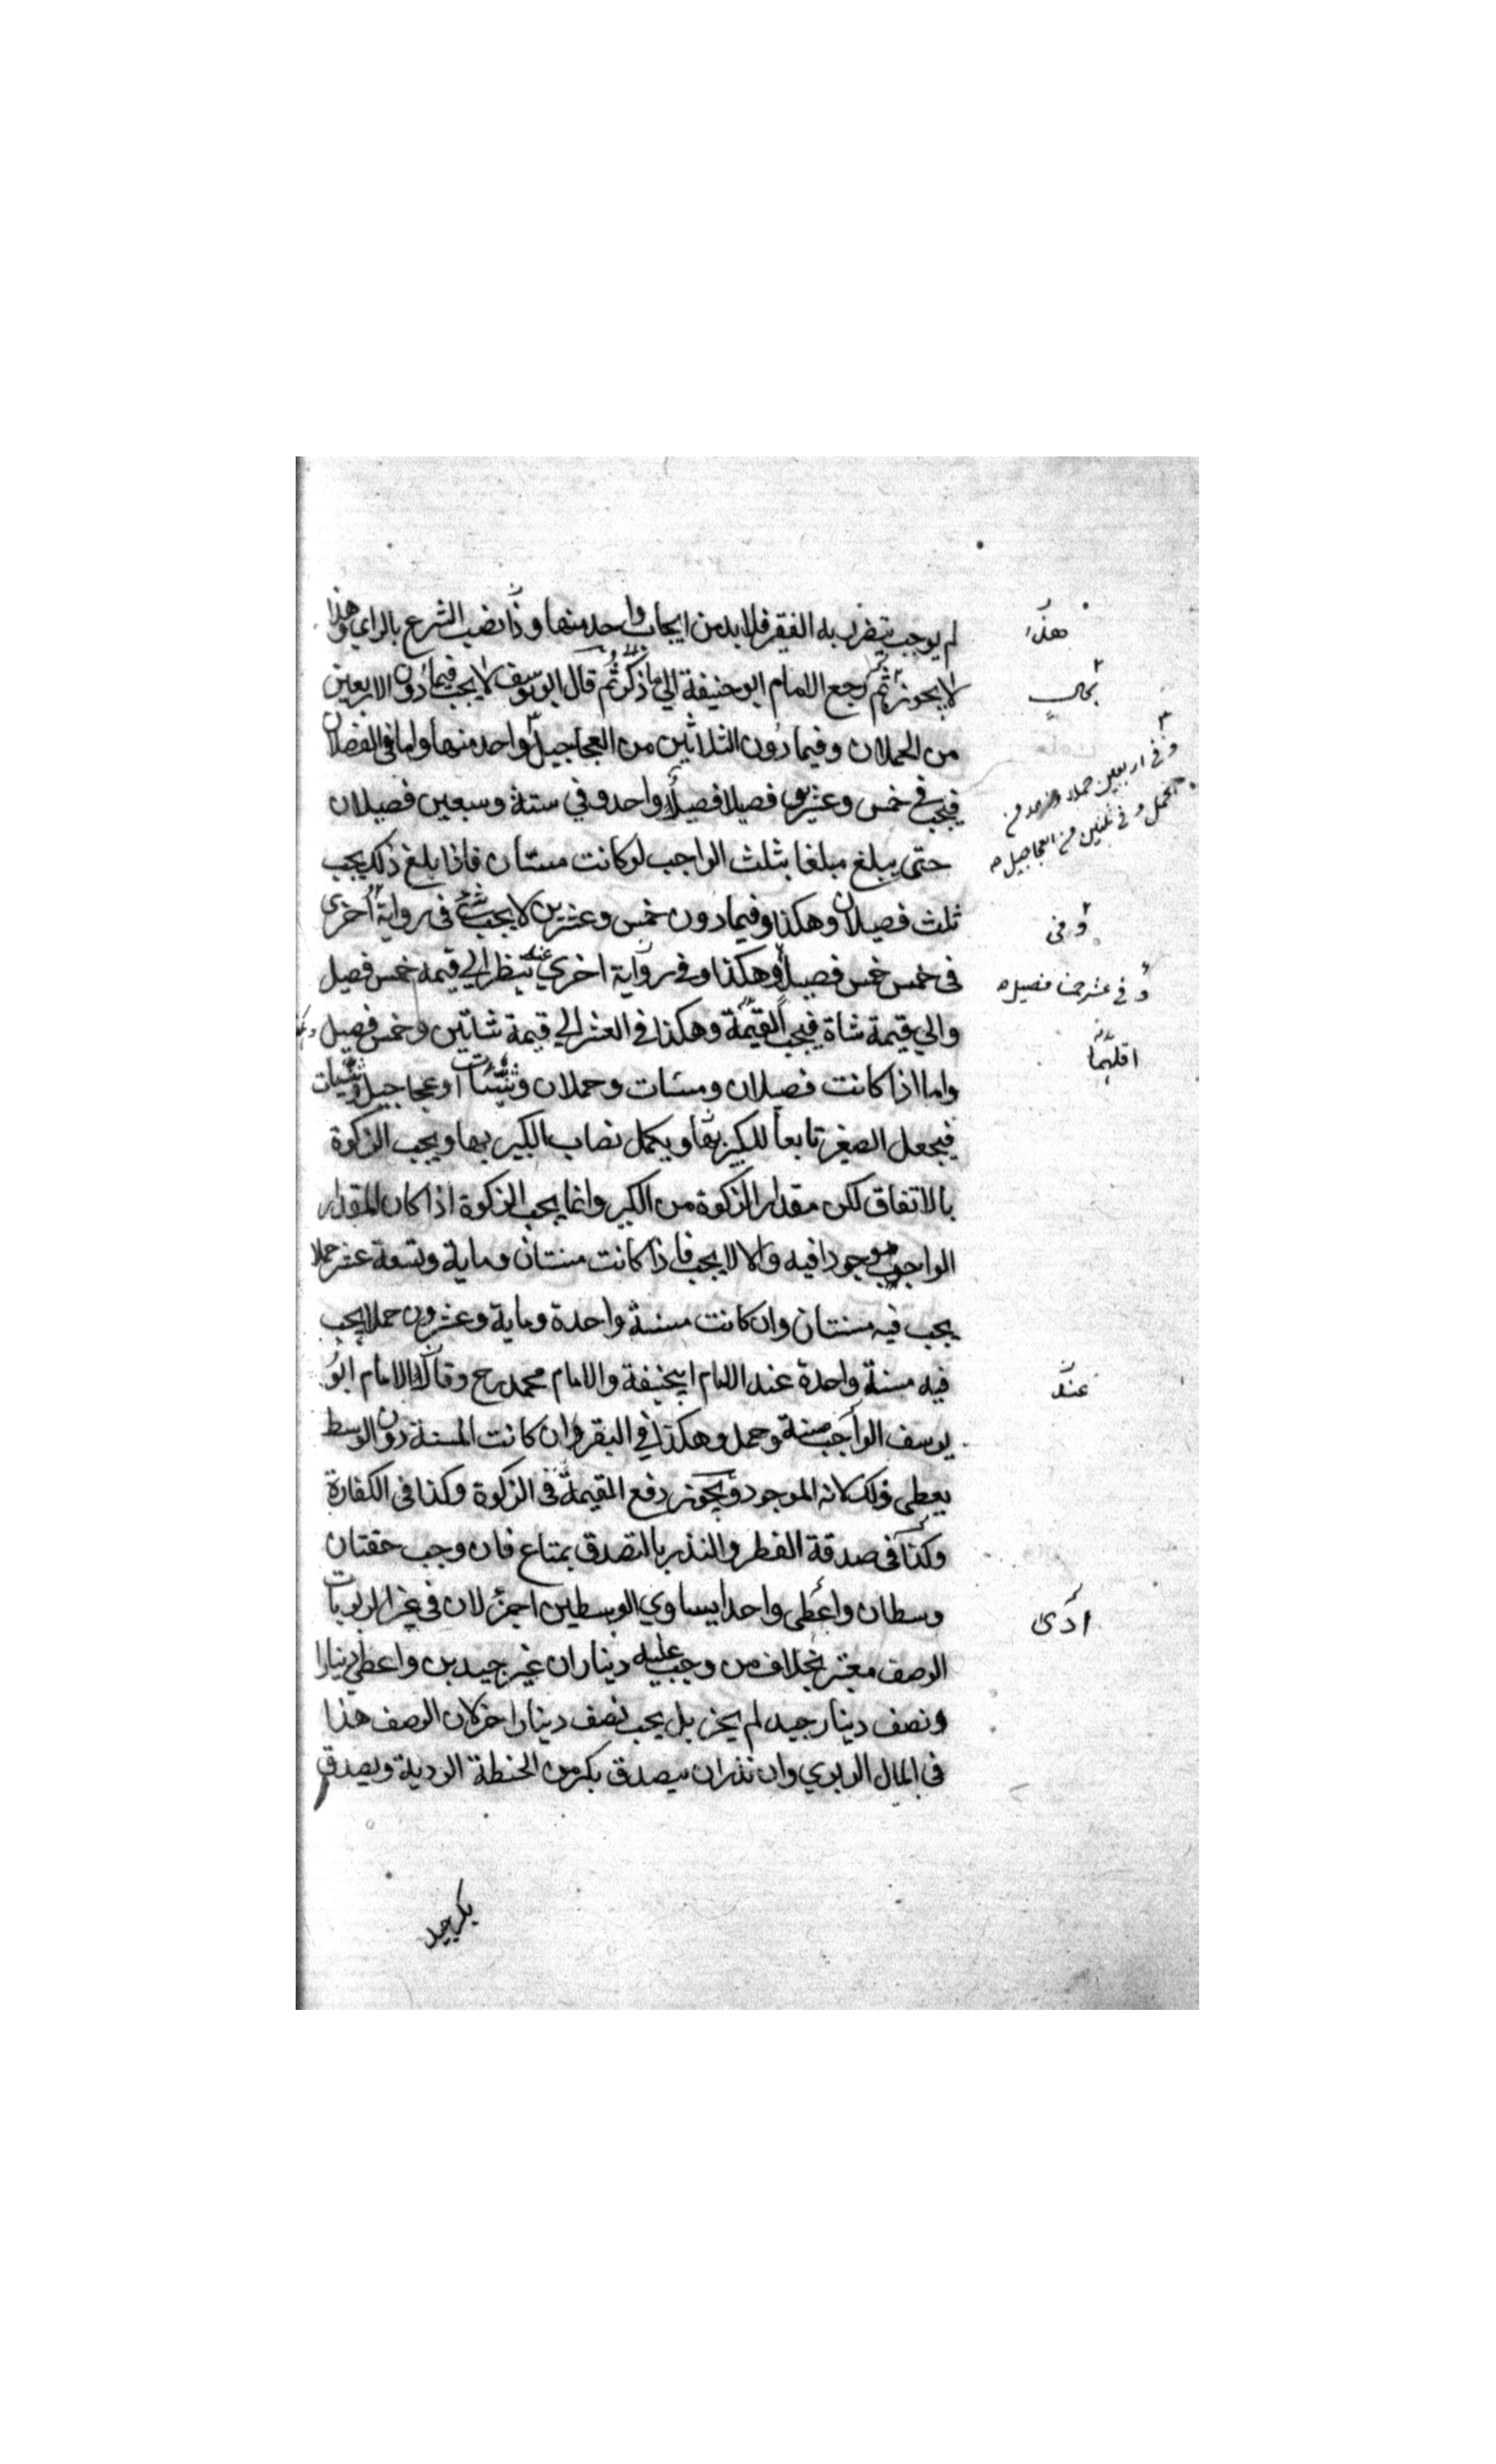 لم يوجب يتضرر به الفقير فلا بد من ايجاب واحد منها وذا نصب الشرع بالراي وهذا
لا يجوز ثم رجع الامام ابو حنيفة الي ما ذكر ثم قال ابو يوسف لا يجب فيما دون الاربعين
من الحملان وفيما دون الثلاثين من العجاجيل واحد منها واما في الفصلان
فيجب في خمس وعشرين فصيلا فصيلا واحد وفي ستة وسبعين فصيلان
حتى يبلغ مبلغا يثلث الواجب لو كانت مسنات فاذا بلغ ذلك يجب
ثلث فصيلان وهكذا وفيما دون خمس وعشرين لا يجب شئ في رواية اخرى
في خمس خمس فصيلا وهكذا وفي رواية اخري عنه ينظر الي قيمة خمس فصيل
والي قيمة شاة فيجب القيمة وهكذا في العشر الي قيمة شاتين وخمس فصيل
واما اذا كانت فصيلان ومسنات وحملان وثنيات او عجاجيل وثنيات
فيجعل الصغير تابعا للكبير بها ويكمل نصاب الكبير بها ويجب الزكوة
بالاتفاق لكن مقدار الزكوة من الكبير وانما يجب الزكوة اذا كان المقدار
الواجب موجودا فيه والا لا يجب فاذا كانت مسنتان وماية وتسعة عشر حملا
يجب فيه مسنتان وان كانت مسنة واحدة وماية وعشرون حملا يجب
فيه مسنة واحدة عند الامام ابيحنيفة والامام محمد رح وقال الامام ابو
يوسف الواجب مسنة وحمل وهكذا في البقر وان كانت المسنة دون الوسط
يعطي ذلك لانه الموجود ويجوز دفع القيمة في الزكوة وكذا في الكفارة
وكذا في صدقة الفطر والنذر بالتصدق بمتاع فان وجب حقتان
وسطان واعطى واحدا يساوي الوسطين اجزأ لان في غير الربويات
الوصف معتبر بخلاف من وجب عليه ديناران غير جيدين واعطي دينارا
ونصف دينار جيد لم يجز بل يجب نصف دينار اخر لان الوصف هذا
في المال الربوي وان نذر ان يتصدق بكر من الحنطة الردية ويصدق
بكر جيد
هذا
بحال
وفي اربعين حملا
الحمل وفي ثلثين من العجاجيل
وفي
وفي عشر خمسا فصيل
اقلهما
عند
ادى